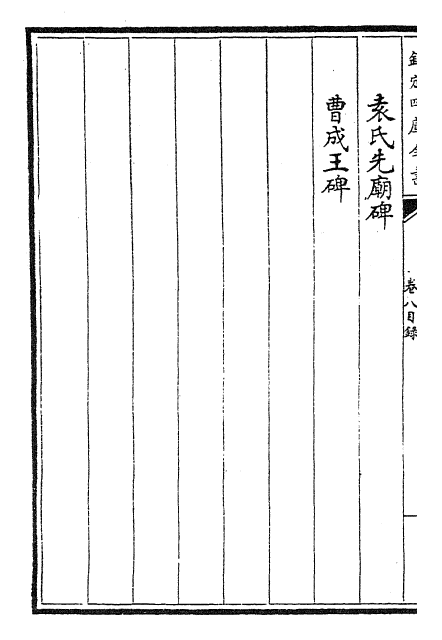 欽定四庫全書
卷八目録
袁氏先廟碑
曹成王碑